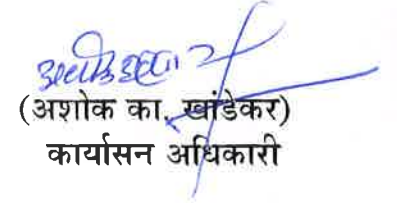 (अशोक का. खांडेकर)
कार्यासन अधिकारी